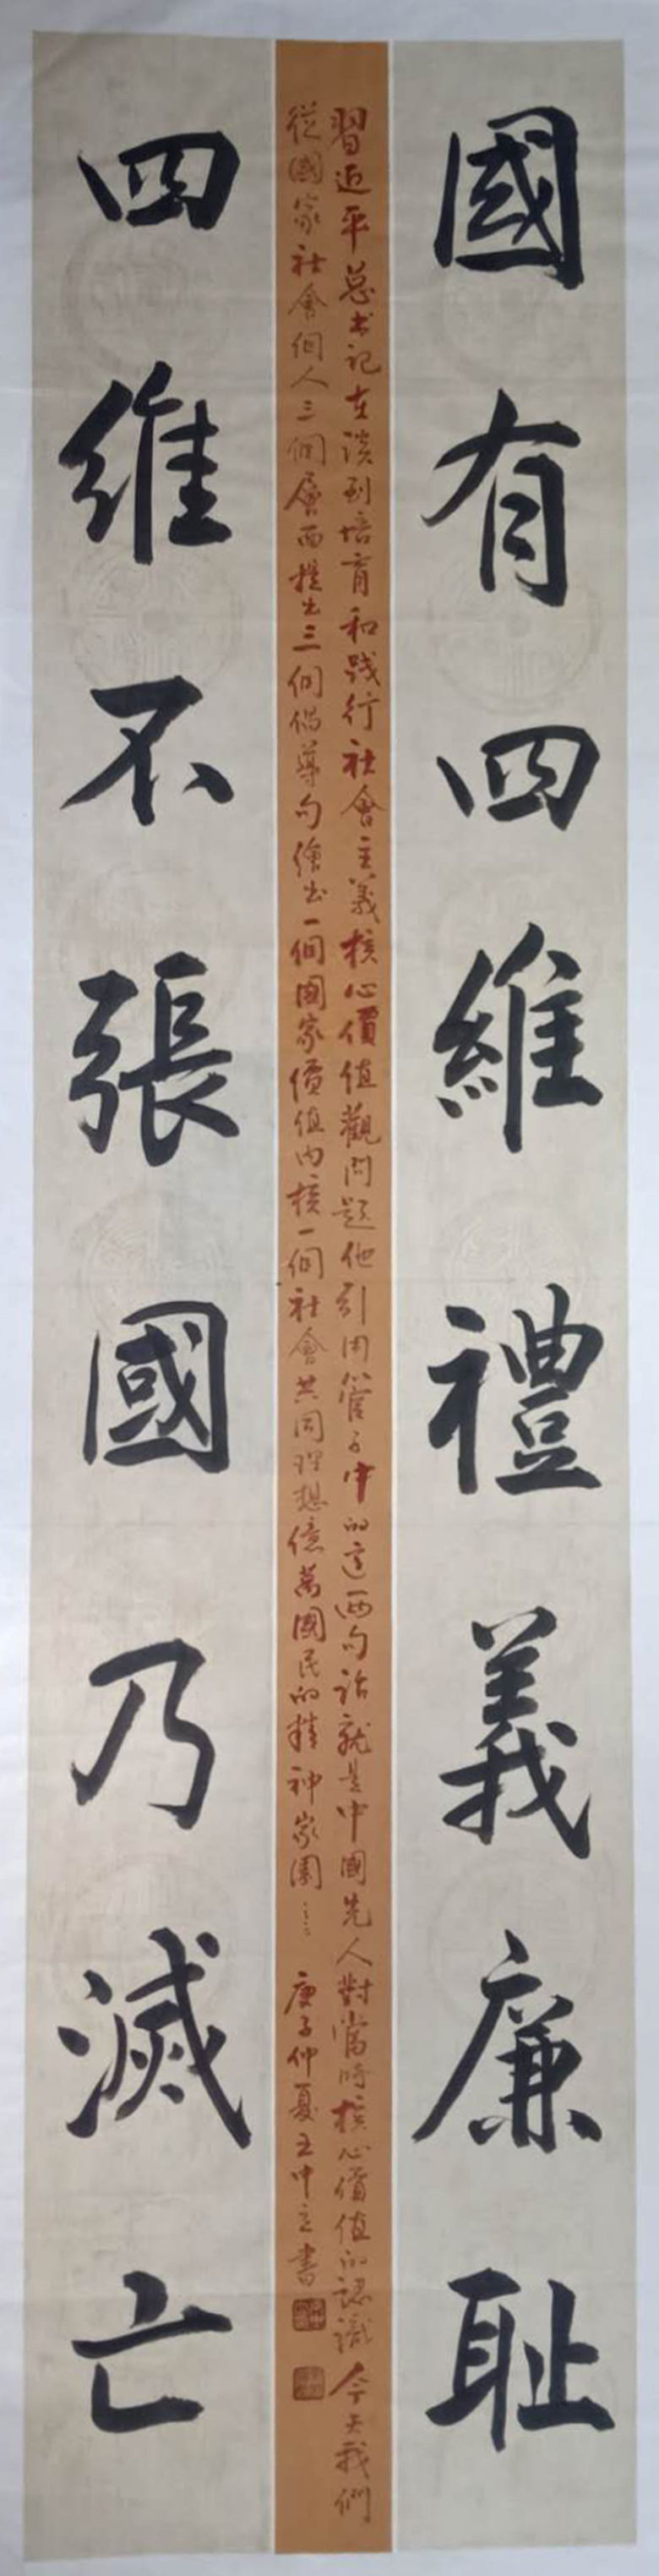 國有四維禮義廉耻
習近平总书记在談到培育和践行社會主義核心價值觀問題他引用管子中的這两句話就是中國先人對當時核心價值的認識今天我們
從國家社會個人三個層面提出三個倡導句繪出一個國家價值内核一個社會共同理想億萬國民的精神家園……庚子仲夏王中立書
四維不張國乃滅亡